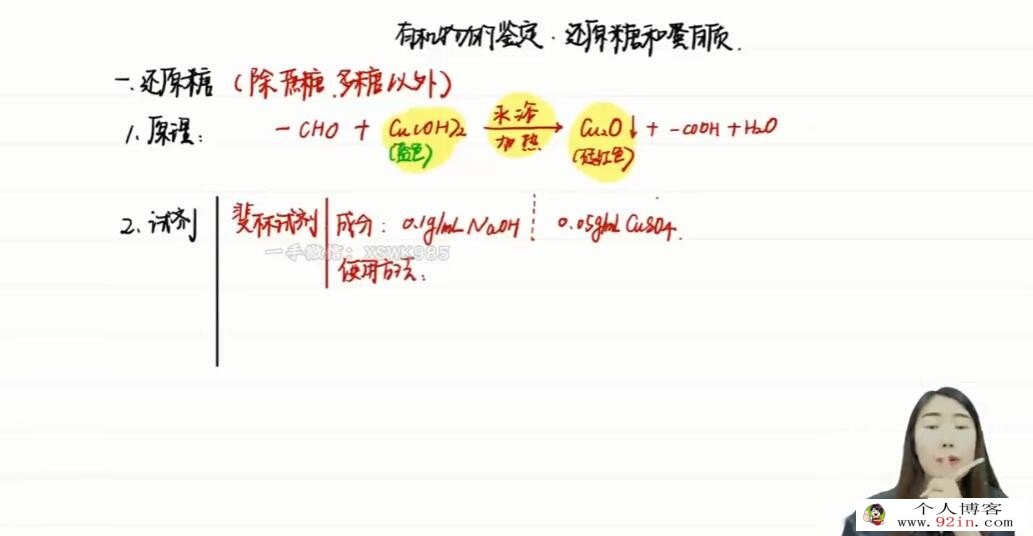 有机物的鉴定·还原糖和蛋白质.
一.还原糖（除蔗糖、多糖以外）
1.原理： -CHO + Cu(OH)2 水浴 加热 Cu2O↓ + -COOH + H2O
(蓝色) (砖红色)
2.试剂 斐林试剂 成分：0.1g/mL NaOH 0.05g/mL CuSO4.
一手微信：XSWK985
使用方法：
个人博客
www.92in.com